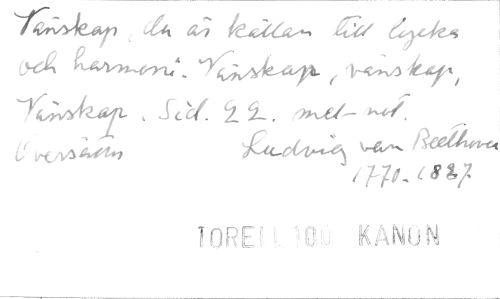 Vänskap, du är källan till lycka
och harmoni. Vänskap, vänskap,
Vänskap. Sid. 22. mel-not.
Översättn Ludvig van Beethoven
1770-1827.
TORELL 100 KANON